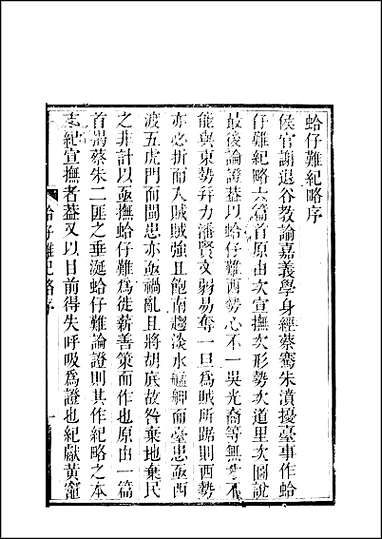 蛤仔難紀略序
侯官謝退谷教諭嘉義學身經蔡騫朱濆擾臺事作蛤
仔難紀略六篇首原由次宣撫次形勢次道里次圖說
最後論證蓋以蛤仔難西勢心不一吳光裔等無 不
能與東勢幷力潘賢文弱易奪一旦為賊所踞則西勢
亦必折而入賊賊強且飽南趨淡水艋舺而臺患亟西
渡五虎門而閩患亦亟禍亂且將胡底故咎棄地棄民
之非計以亟撫蛤仔難為徙薪善策而作也原由一篇
首揭蔡朱二匪之垂涎蛤仔難論證則其作紀略之本
志紀宣撫者蓋又以目前得失呼吸為證也紀獻黃寵
蛤仔難紀略序 一